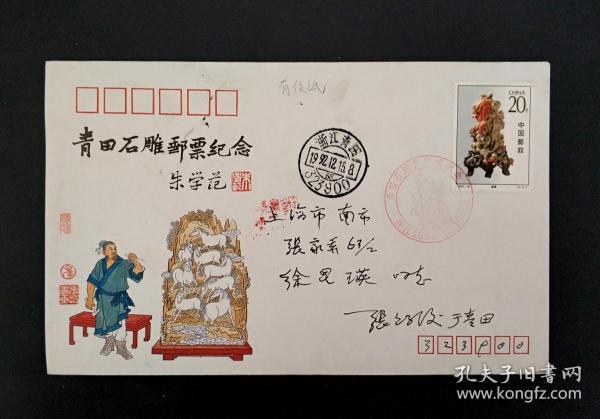 有信纸
CHINA
20分
中国邮政
青田石雕郵票纪念
朱学范
浙江青田
1992.12.15.8
323900
上海市 南市
张家弄63/2
徐恩瑛 同志
张 于青田
323900
孔夫子旧书网
kongfz.com